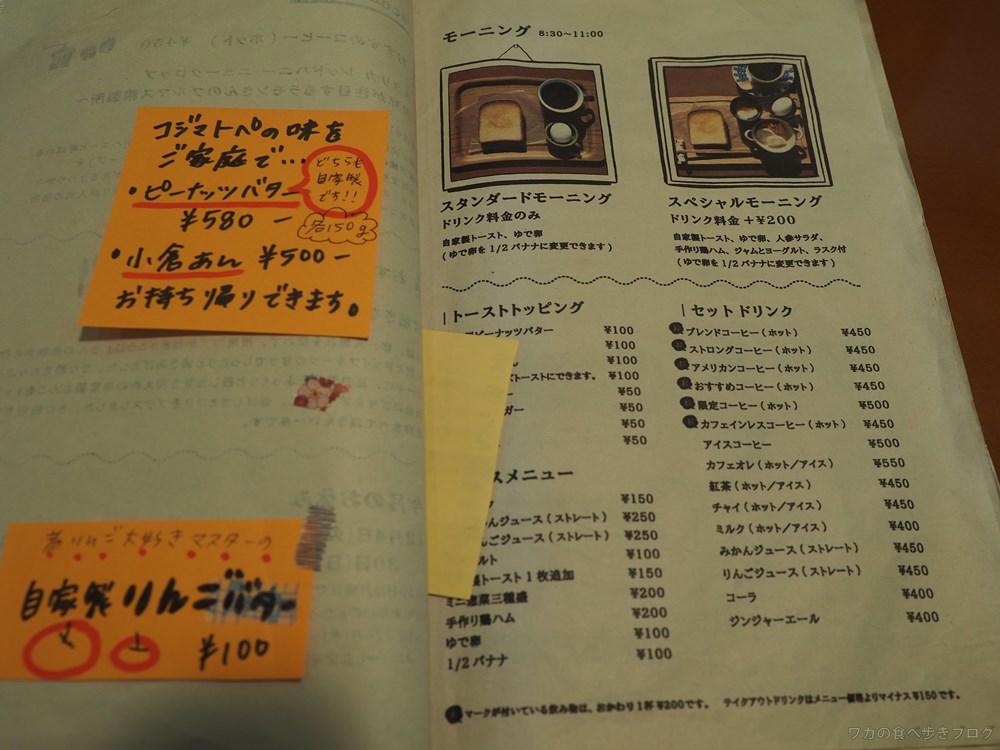 コジマトペの味を
ご家庭で…
・ピーナッツバター
¥580-
どちらも
自家製
です!!
各150g
・小倉あん ¥500-
お持ち帰りできます。
りんご大好きマスターの
自家製りんごバター
¥100
モーニング 8:30~11:00
スタンダードモーニング
ドリンク料金のみ
自家製トースト、ゆで卵
(ゆで卵を 1/2 バナナに変更できます)
スペシャルモーニング
ドリンク料金 +¥200
自家製トースト、ゆで卵、人参サラダ、
手作り鶏ハム、ジャムとヨーグルト、ラスク付
(ゆで卵を 1/2 バナナに変更できます)
トーストトッピング
ピーナッツバター ¥100
¥100
ん ¥100
トーストにできます。 ¥100
ー ¥50
ガー ¥50
¥50
¥50
スメニュー
¥150
んジュース(ストレート) ¥250
んごジュース(ストレート) ¥250
ルト ¥100
製トースト1枚追加 ¥150
ミニ惣菜三種盛 ¥200
手作り鶏ハム ¥200
ゆで卵 ¥100
1/2 バナナ ¥100
セットドリンク
ブレンドコーヒー(ホット) ¥450
ストロングコーヒー(ホット) ¥450
アメリカンコーヒー(ホット) ¥450
おすすめコーヒー(ホット) ¥450
限定コーヒー(ホット) ¥500
カフェインレスコーヒー(ホット) ¥450
アイスコーヒー ¥500
カフェオレ(ホット/アイス) ¥550
紅茶(ホット/アイス) ¥450
チャイ(ホット/アイス) ¥450
ミルク(ホット/アイス) ¥400
みかんジュース(ストレート) ¥450
りんごジュース(ストレート) ¥450
コーラ ¥400
ジンジャーエール ¥400
マークが付いている飲み物は、おかわり1杯¥200です。 テイクアウトドリンクはメニュー価格よりマイナス¥150です。
ワカの食べ歩きブログ